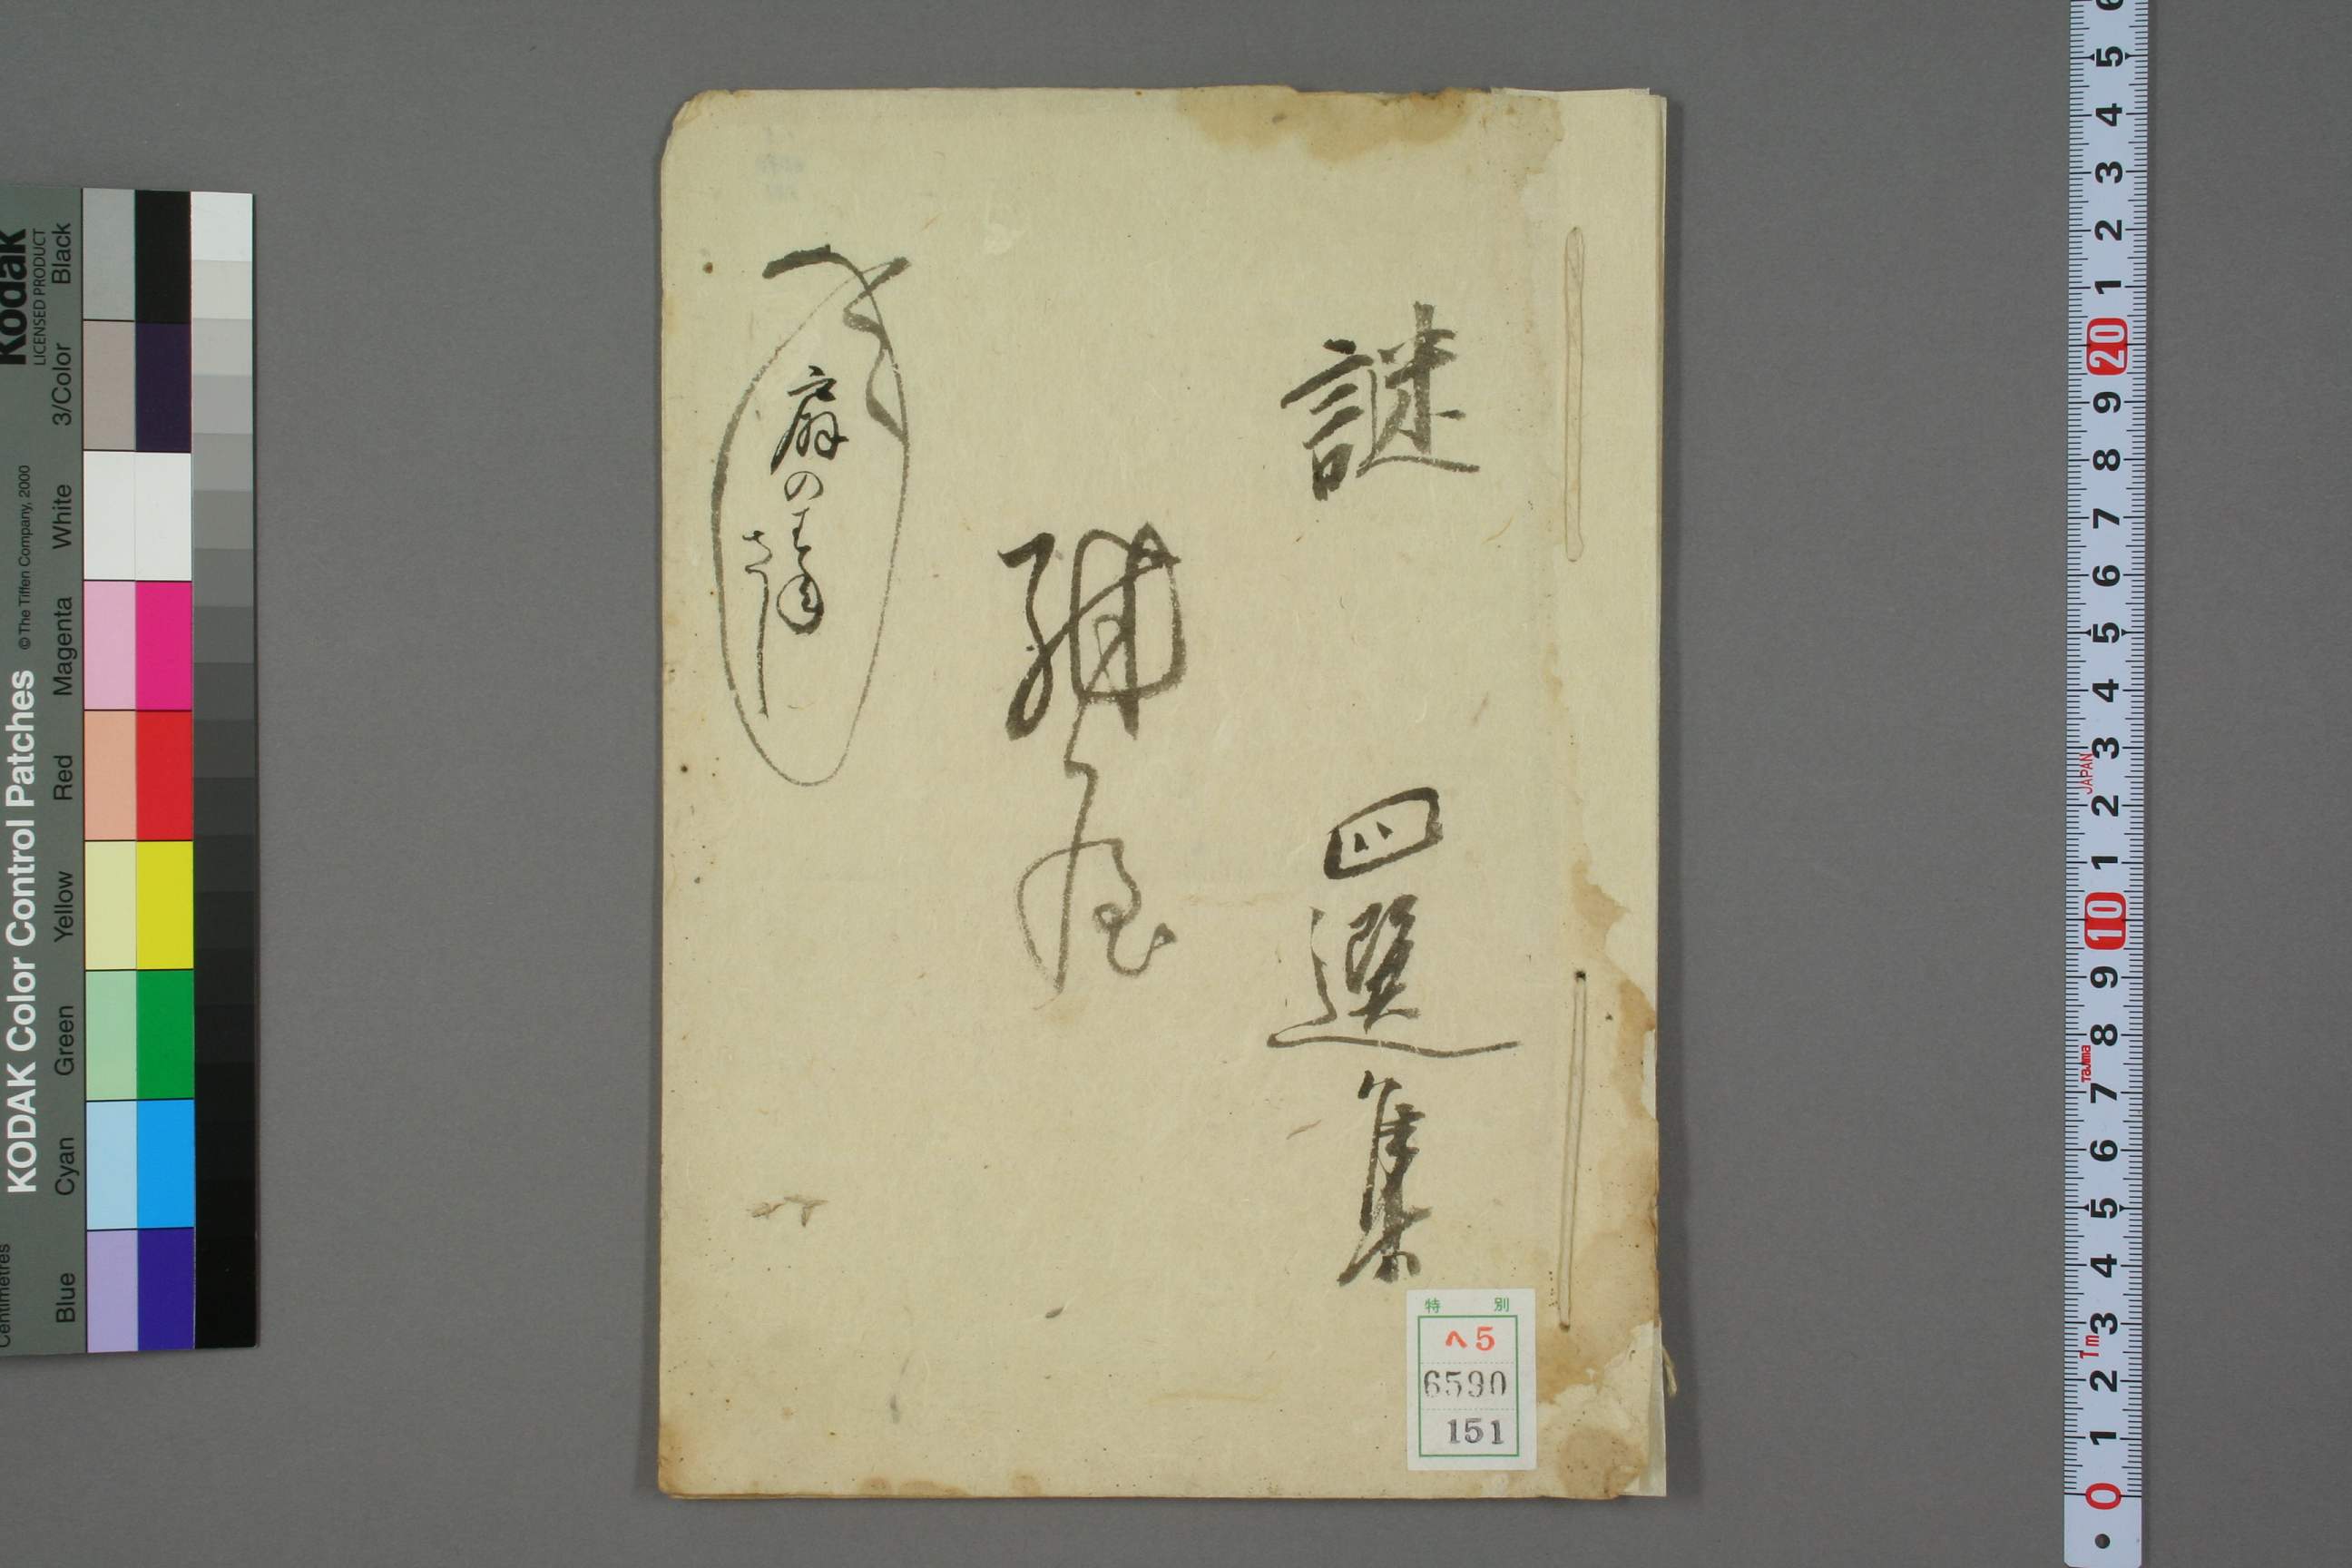 謎
四選集
扇の
特別
ヘ5
6590
151
Kodak
LICENSED PRODUCT
KODAK Color Control Patches
©The Tiffen Company, 2000
Centimetres
Blue
Cyan
Green
Yellow
Red
Magenta
White
3/Color
Black
6
5
4
3
2
1
20
9
8
7
6
5
4
3
JAPAN
2
1
10
9
8
Tajima
7
6
5
4
3
1m
2
1
0